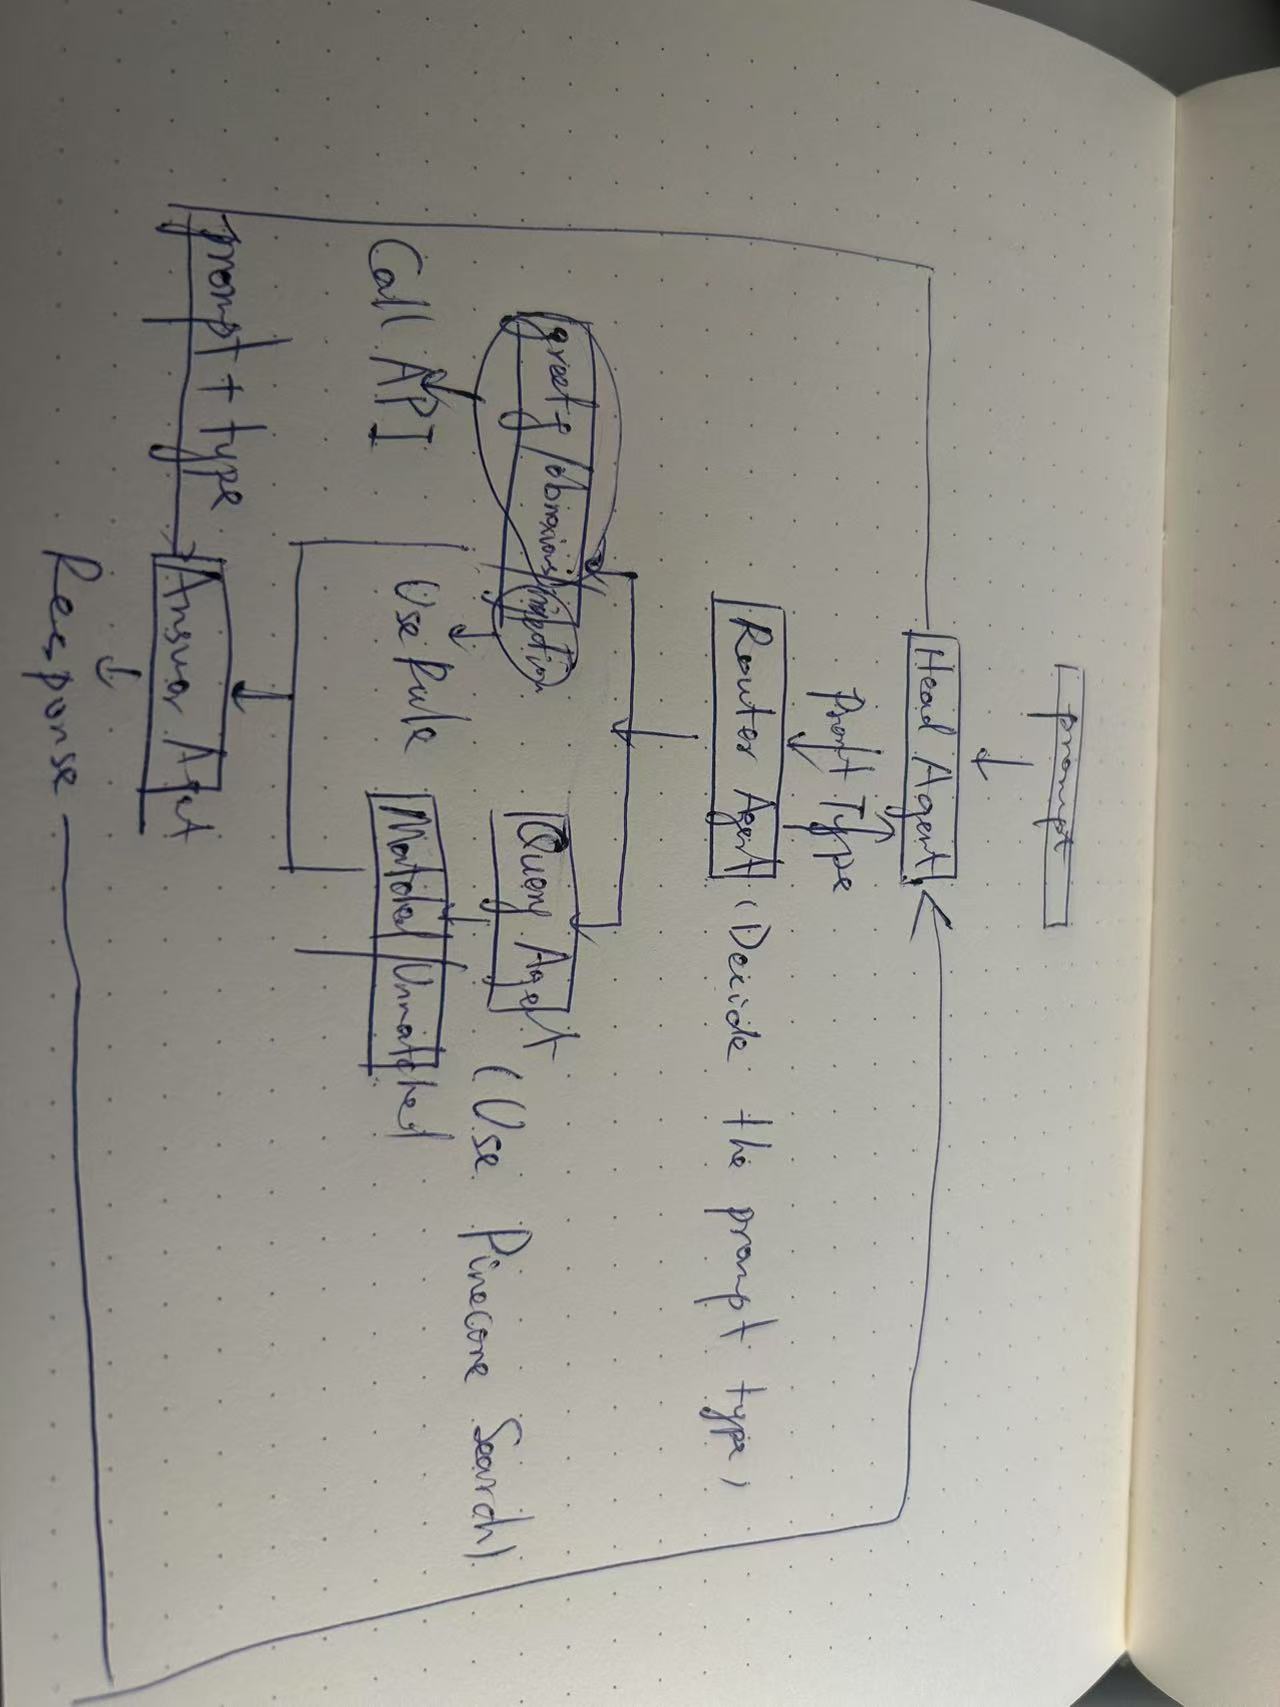 prompt
Head Agent
Promt Type
Router Agent (Decide the prompt type)
greetg/obnoxious/
Query Agent (Use Pinecone Search)
Call API
Use Rule
Matched/Unmatched
prompt + type
Answer Aget
Response